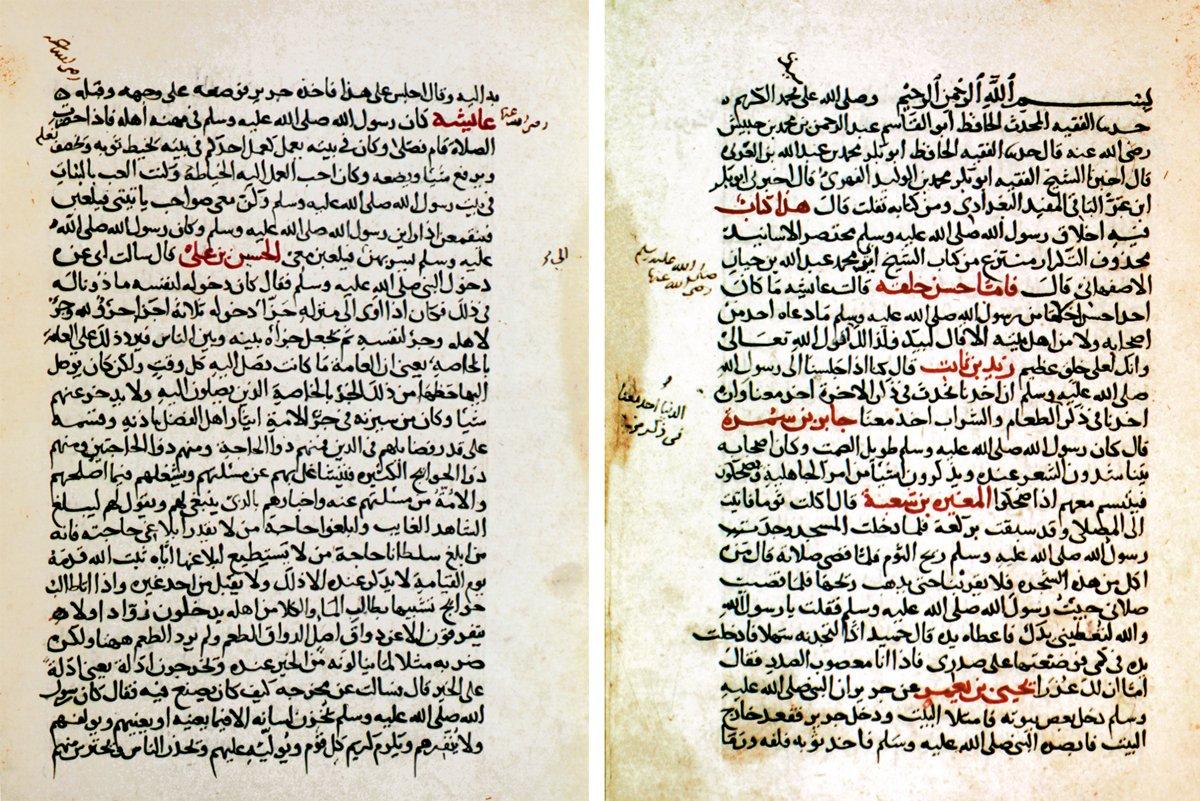 بسم الله الرحمن الرحيم وصلى الله على محمد الكريم
حدثنا الفقيه المحدث الحافظ ابو القاسم عبد الرحمن بن محمد بن حبيش
رضي الله عنه قال حدثنا الفقيه الحافظ ابو بكر محمد بن عبد الله بن العربي
قال اخبرنا الشيخ الفقيه ابو بكر محمد بن الوليد الفهري قال اخبرني ابو بكر
ومن كتابه نقلت قال هذا كتاب
فيه اخلاق رسول الله صلى الله عليه وسلم مختصر الاسانيد
محذوف التكرار منتزع من كتاب الشيخ ابو محمد عبد الله بن حيان
الاصفهاني قال فاما حسن خلقه قالت عائشة ما كان
احد احسن خلقا من رسول الله صلى الله عليه وسلم ما دعاه احد من
اصحابه ولا من اهل بيته الا قال لبيك فلذلك انزل الله تعالى
وانك لعلى خلق عظيم زيد بن ثابت قال كنا اذا جلسنا الى رسول الله
صلى الله عليه وسلم ان اخذنا بحديث في ذكر الاخرة اخذ معنا وان
اخذنا في ذكر الطعام والشراب اخذ معنا جابر بن سمرة
قال كان رسول الله صلى الله عليه وسلم طويل الصمت وكان اصحابه
يتناشدون الشعر عنده ويذكرون اشيا من امر الجاهلية ويضحكون
فيتبسم معهم اذا ضحكوا المغيرة بن شعبة قال اكلت ثوما فاتيت
الى المصلى وقد سبقت بركعة فلما دخلت المسجد وجد
رسول الله صلى الله عليه وسلم ريح الثوم فلما قضى صلاته قال من
اكل من هذه الشجرة فلا يقربنا حتى يذهب ريحها فلما قضيت
صلاتي جيت رسول الله صلى الله عليه وسلم فقلت يا رسول الله
والله لتعطيني يدك فاعطاه يده قال فادخلت
يده في كمي فوضعتها على صدري فاذا انا معصوب الصدر فقال
اما ان لك عذرا يحيى بن يعمر عن جرير ان النبي صلى الله عليه
وسلم دخل بعض بيوته فامتلا البيت ودخل جرير فقعد خارج
البيت فابصره النبي صلى الله عليه وسلم فاخذ ثوبه فلفه ورما
صلى الله عليه وسلم
رضي الله عنها
الدنيا اخذ معنا
في ذكر
به اليه وقال اجلس على هذا فاخذه جرير فوضعه على وجهه وقبله
عائشة كان رسول الله صلى الله عليه وسلم في مهنة اهله فاذا حضرت
الصلاة قام فصلى وكان في بيته يعمل كعمل احدكم في بيته يخيط ثوبه ويخصف
ويرقع شيا ويضعه وكان احب العمل اليه الخياطة وكنت العب بالبنات
في بيت رسول الله صلى الله عليه وسلم وكن معي صواحب ياتينني فيلعبن
فينقمعن اذا راين رسول الله صلى الله عليه وسلم وكان رسول الله صلى الله
عليه وسلم يسربهن فيلعبن معي الحسين بن علي قال سالت ابي عن
دخول النبي صلى الله عليه وسلم فقال كان دخوله لنفسه ماذونا له
في ذلك فكان اذا اوى الى منزله جزا دخوله ثلاثة اجزا جزو لله وجزو
لاهله وجزو لنفسه ثم يجعل جزاه بينه وبين الناس فيرد ذلك على العامة
بالخاصة يعني ان العامة ما كانت تصل اليه كل وقت ولكن كان يوصل
اليها حظها من ذلك الجزو بالخاصة الذين يصلون اليه ولا يدخر عنهم
شيا وكان من سيرته في جزو الامة ايثار اهل الفضل باذنه وقسمه
على قدر فضلهم في الدين فمنهم ذو الحاجة ومنهم ذو الحاجتين ومنهم
ذوا الحوائج الكثيرة فيتشاغل بهم عن مسئلتهم ويشغلهم فيما اصلحهم
والامة من مسئلتهم عنه واخبارهم بالذي ينبغي لهم ويقول لهم ليبلغ
الشاهد الغايب وابلغوا حاجة من لا يقدر ابلاغي حاجته فانه
من ابلغ سلطانا حاجة من لا يستطيع ابلاغها اياه ثبت الله قدمه
يوم القيامة لا يذكر عنده الا ذلك ولا يقبل من احد غيره واذا
يدخلون زوادا ولا
يتفرقون الا عن ذواق اصل الذواق الطعم ولم يرد الطعم ههنا ولكن
ضربه مثلا لما ينالونه من الخير عنده ويخرجون ادلة يعني ادلة
على الخير قال فسالت عن مخرجه كيف كان يصنع فيه فقال كان رسول
الله صلى الله عليه وسلم يخزن لسانه الا فيما يعنيه او يعنيهم ويولفهم
ولا ينفرهم ويكرم كريم كل قوم ويوليه عليهم ويحذر الناس ويحترس منهم
رضي الله عنها